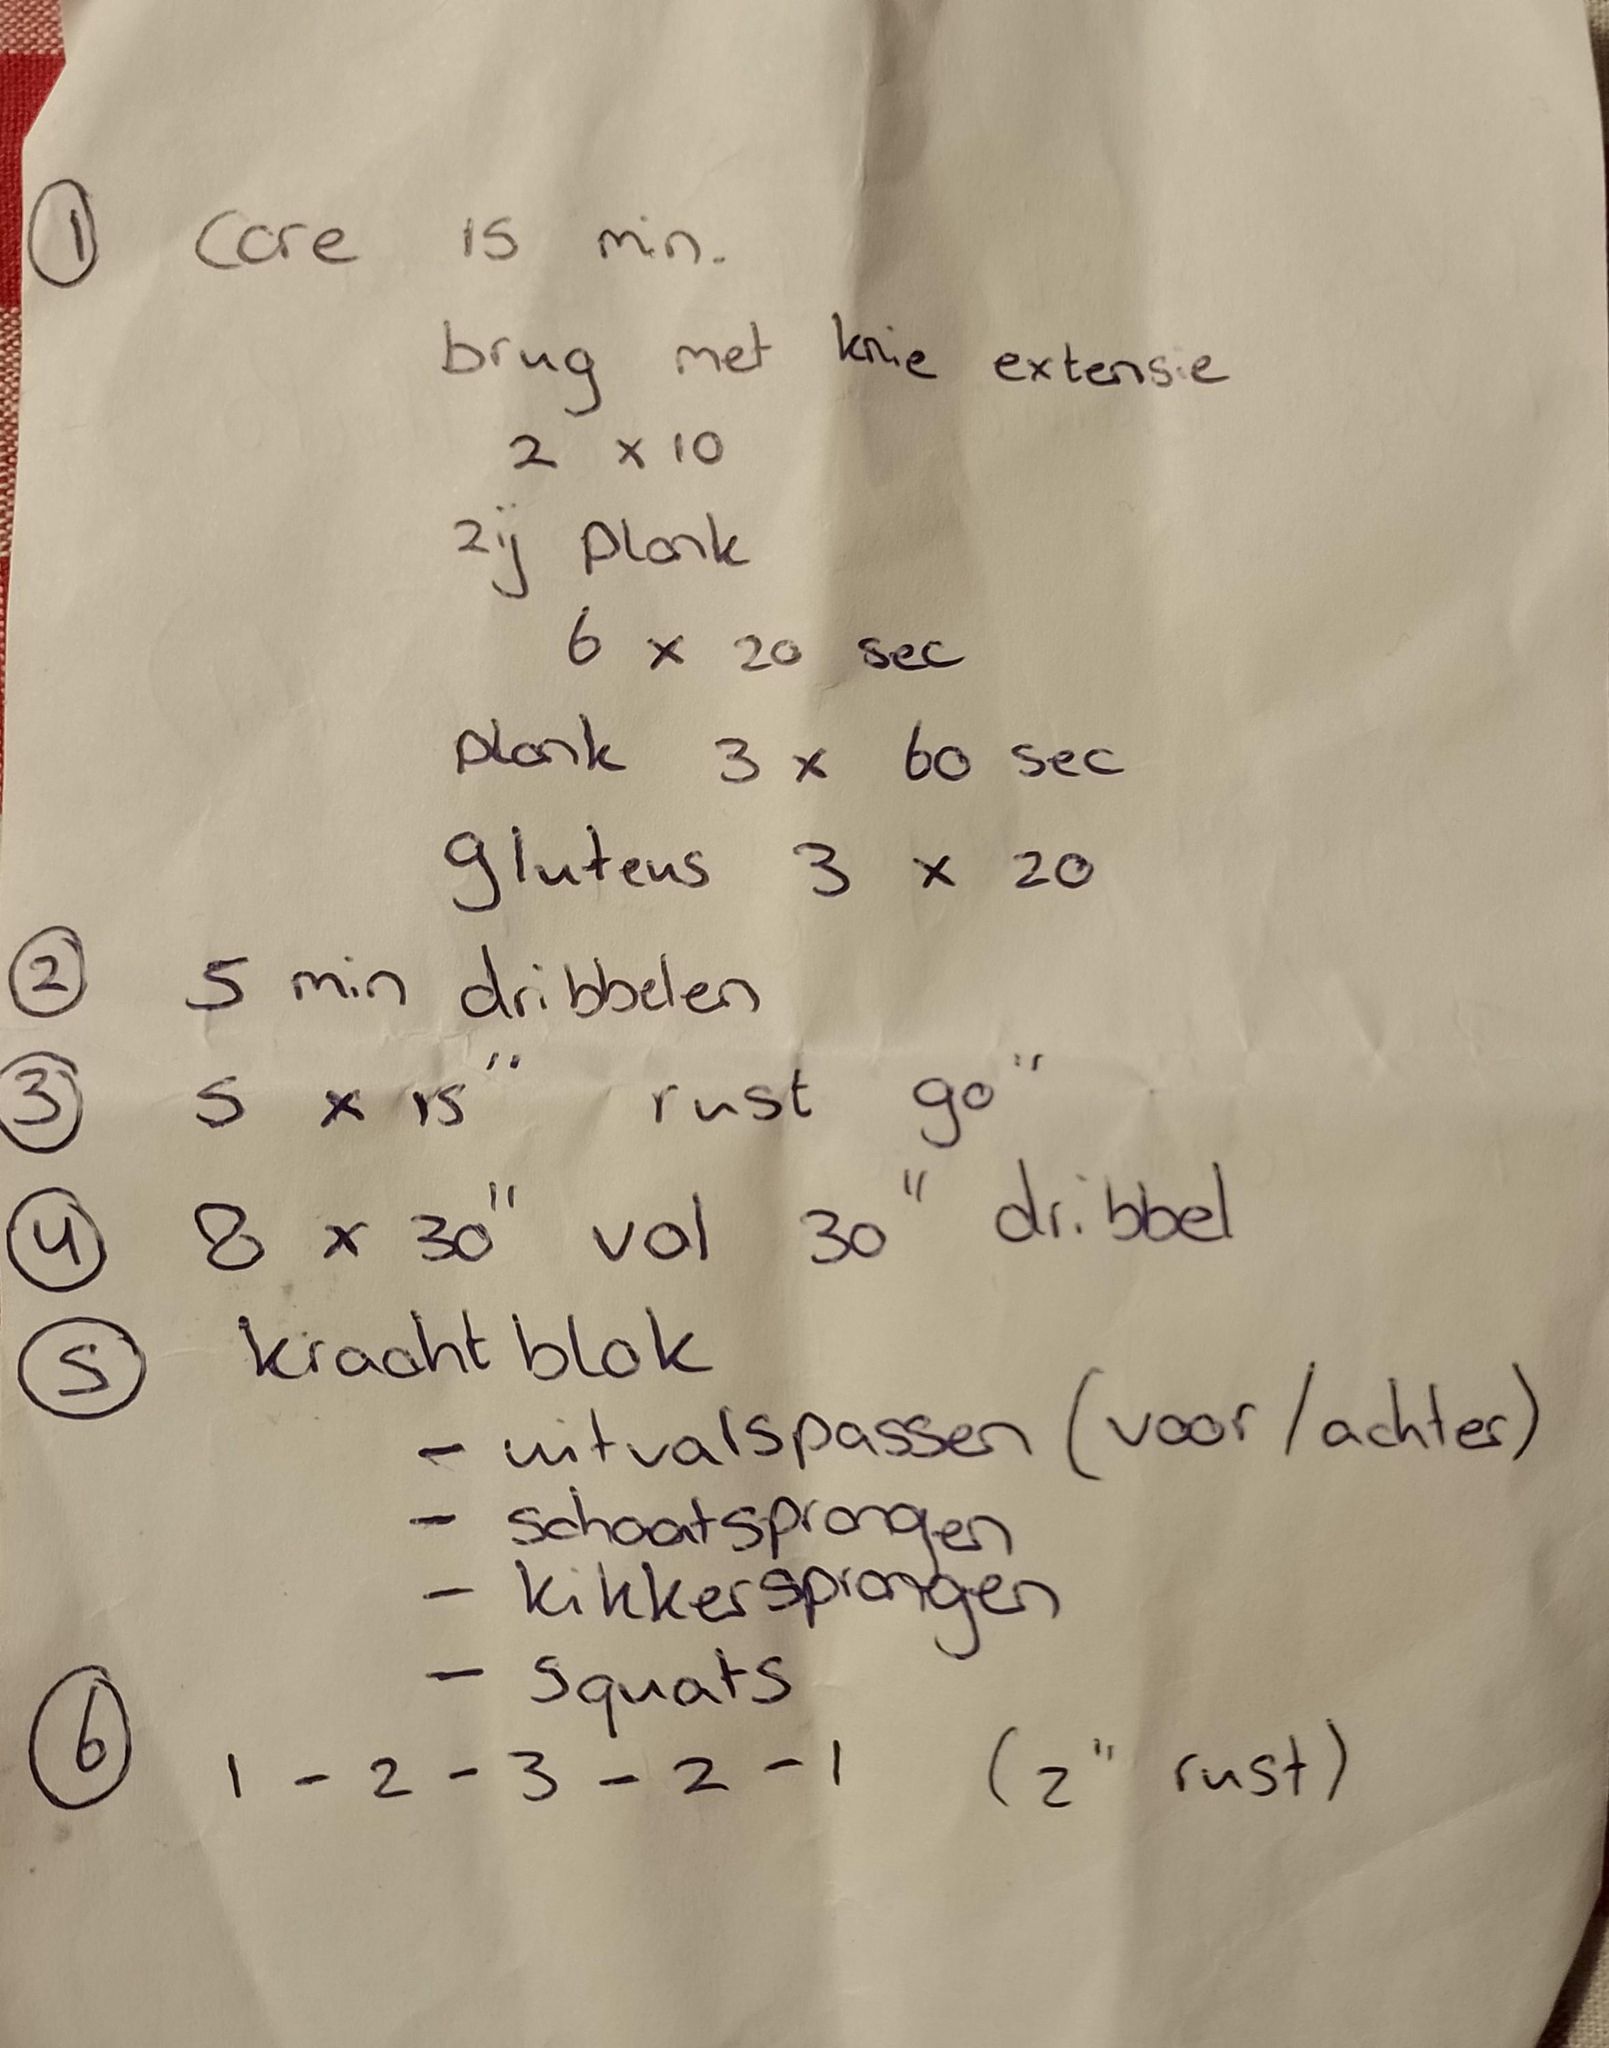 ① Core 15 min.
brug met knie extensie
2 x 10
zij plank
6 x 20 sec
plank 3 x 60 sec
gluteus 3 x 20
② 5 min dribbelen
③ 5 x 15" rust 90"
④ 8 x 30" vol 30" dribbel
⑤ kracht blok
- uitvalspassen (voor/achter)
- schaatsprongen
- kikkersprongen
- squats
⑥ 1 - 2 - 3 - 2 - 1 (2" rust)